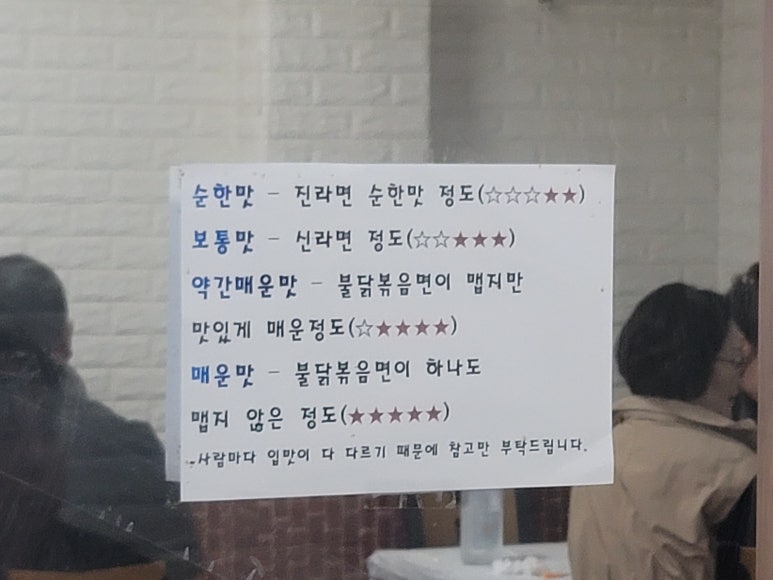 순한맛 - 진라면 순한맛 정도(☆☆☆★★)
보통맛 - 신라면 정도(☆☆★★★)
약간매운맛 - 불닭볶음면이 맵지만
맛있게 매운정도(☆★★★★)
매운맛 - 불닭볶음면이 하나도
맵지 않은 정도(★★★★★)
-사람마다 입맛이 다 다르기 때문에 참고만 부탁드립니다.